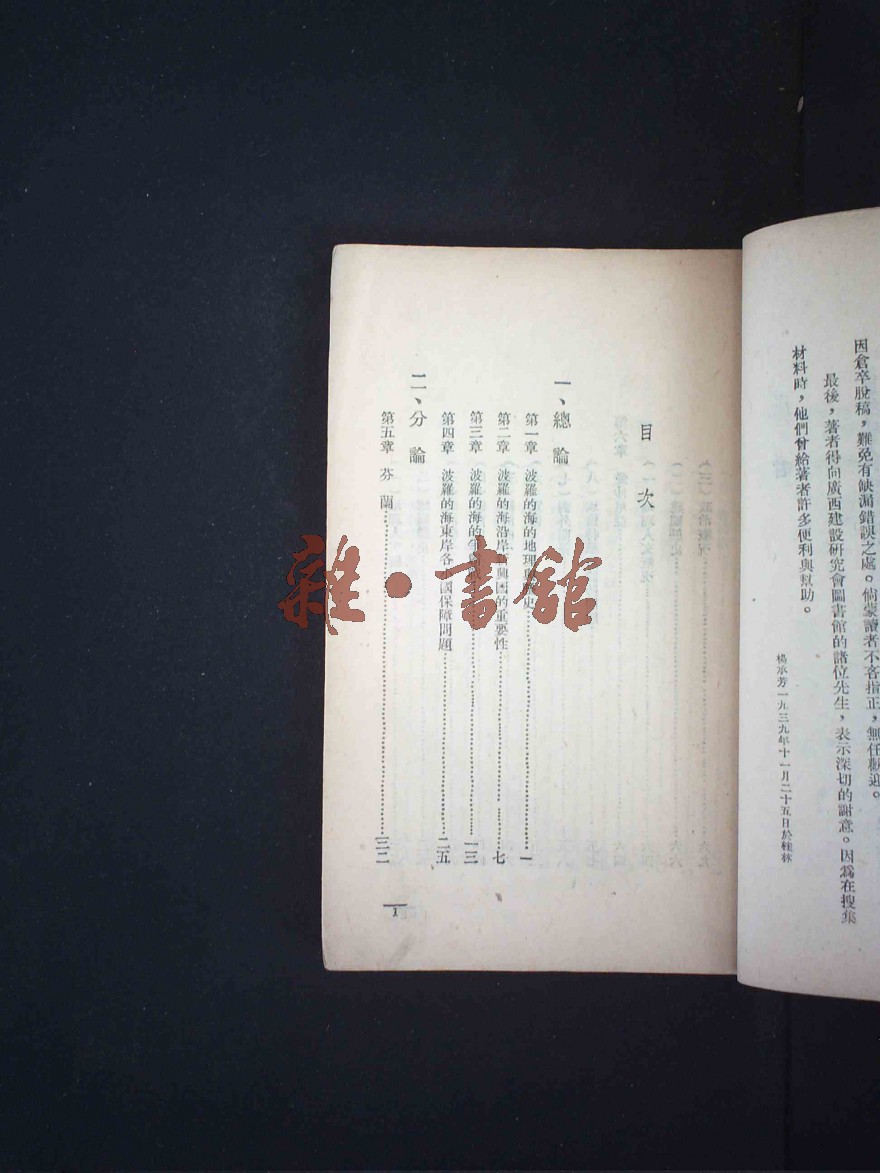 因倉卒脫稿，難免有缺漏錯誤之處。倘蒙讀者不吝指正，無任歡迎。
最後，著者得向廣西建設研究會圖書館的諸位先生，表示深切的謝意。因爲在搜集
材料時，他們曾給著者許多便利與幫助。
楊承芳一九三九年十一月二十五日於桂林
目次
一、總論
第一章 波羅的海的地理與歷史……一
第二章 波羅的海沿岸新興國的重要性……七
第三章 波羅的海的……一三
第四章 波羅的海東岸各國保障問題……二五
二、分論
第五章 芬蘭……三二
1
雜·書館